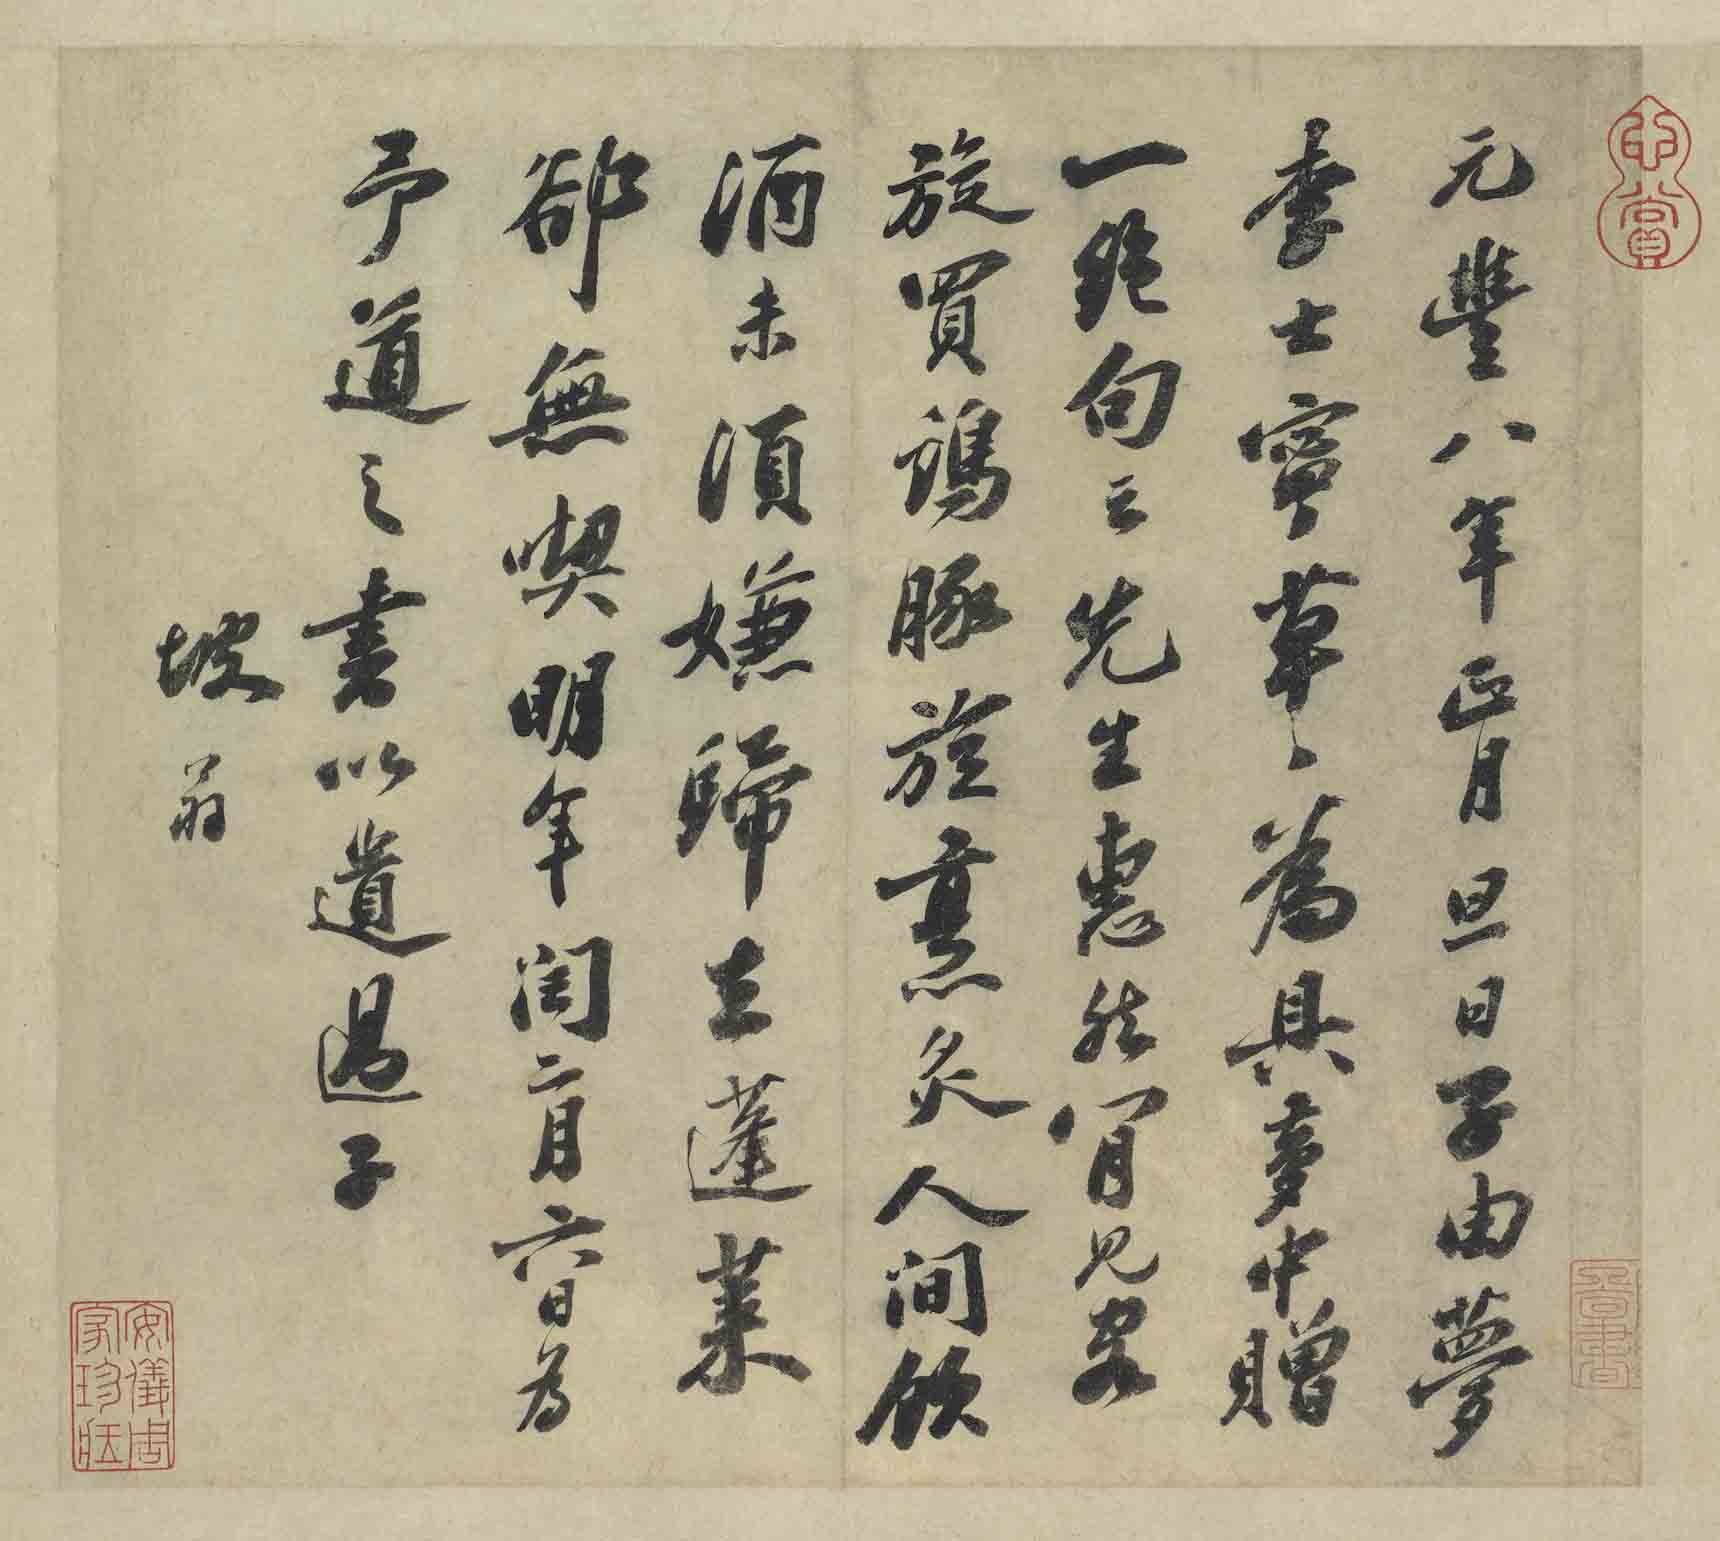 心賞
元豐八年正月旦日子由夢
李士寧草〻為具夢中贈
一絕句云先生惠然肯見客
旋買雞豚旋烹炙人間飲
酒未須嫌歸去蓬萊
卻無喫明年閏二月六日為
予道之書以遺過子
坡翁
安儀周
家珍藏